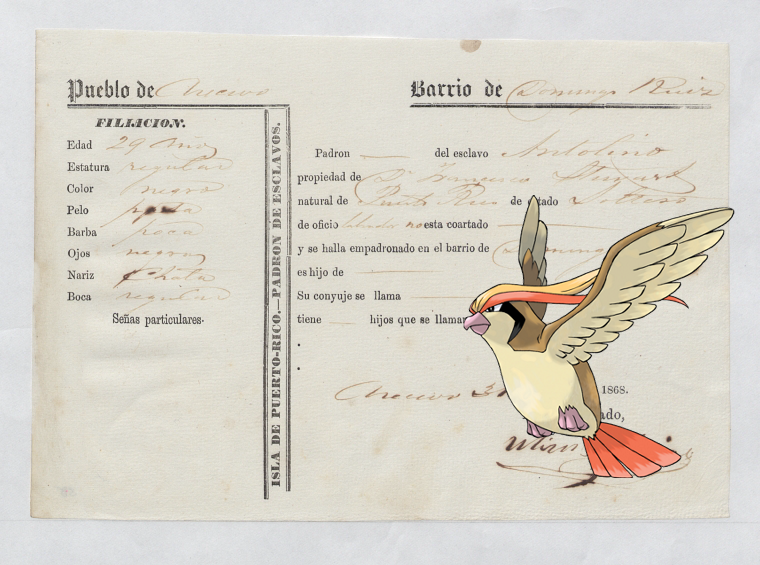 Pueblo de Arecivo
Barrio de Domingo Ruiz
FILIACION.
Edad 29 Años
Estatura regular
Color negro
Pelo pasta
Barba poca
Ojos negros
Nariz Chata
Boca regular
Señas particulares.
ISLA DE PUERTO-RICO.—PADRON DE ESCLAVOS.
Padron del esclavo Antolino
propiedad de Dn. Francisco
natural de Puerto Rico de estado Soltero
de oficio no esta coartado
y se halla empadronado en el barrio de Domingo
es hijo de
Su conyuje se llama
tiene hijos que se llaman
Arecivo 31 1868.